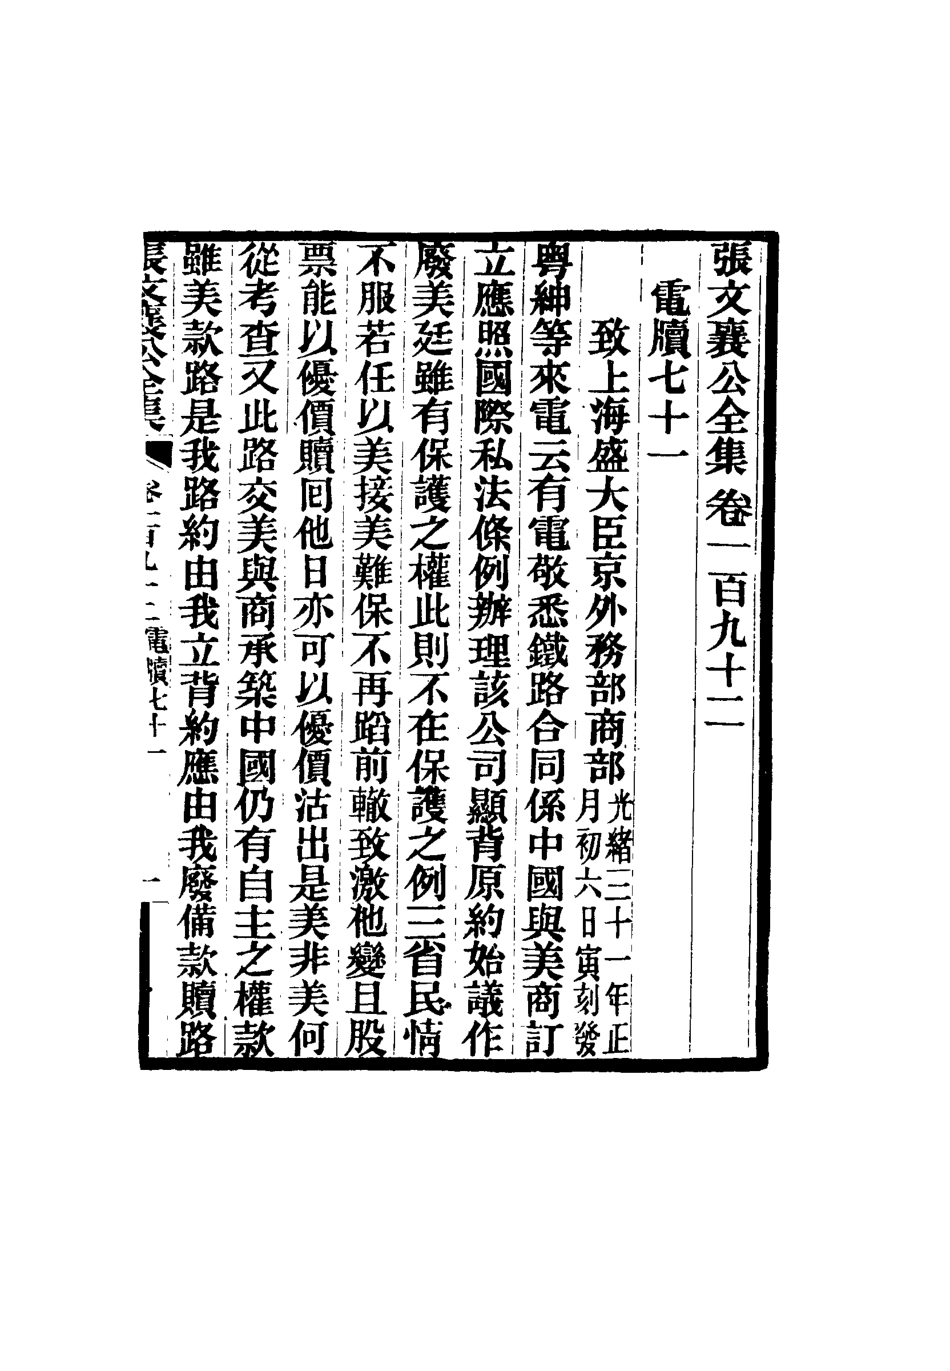 張文襄公全集卷一百九十二
電牘七十一
致上海盛大臣京外務部商部光緒三十一年正月初六日寅刻發
粵紳等來電云有電敬悉鐵路合同係中國與美商訂
立應照國際私法條例辦理該公司顯背原約始議作
廢美廷雖有保護之權此則不在保護之例三省民情
不服若任以美接美難保不再蹈前轍致激他變且股
票能以優價贖回他日亦可以優價沽出是美非美何
從考查又此路交美與商承築中國仍有自主之權款
雖美款路是我路約由我立背約應由我廢備款贖路
張文襄公全集 卷一百九十二 電牘七十一 一